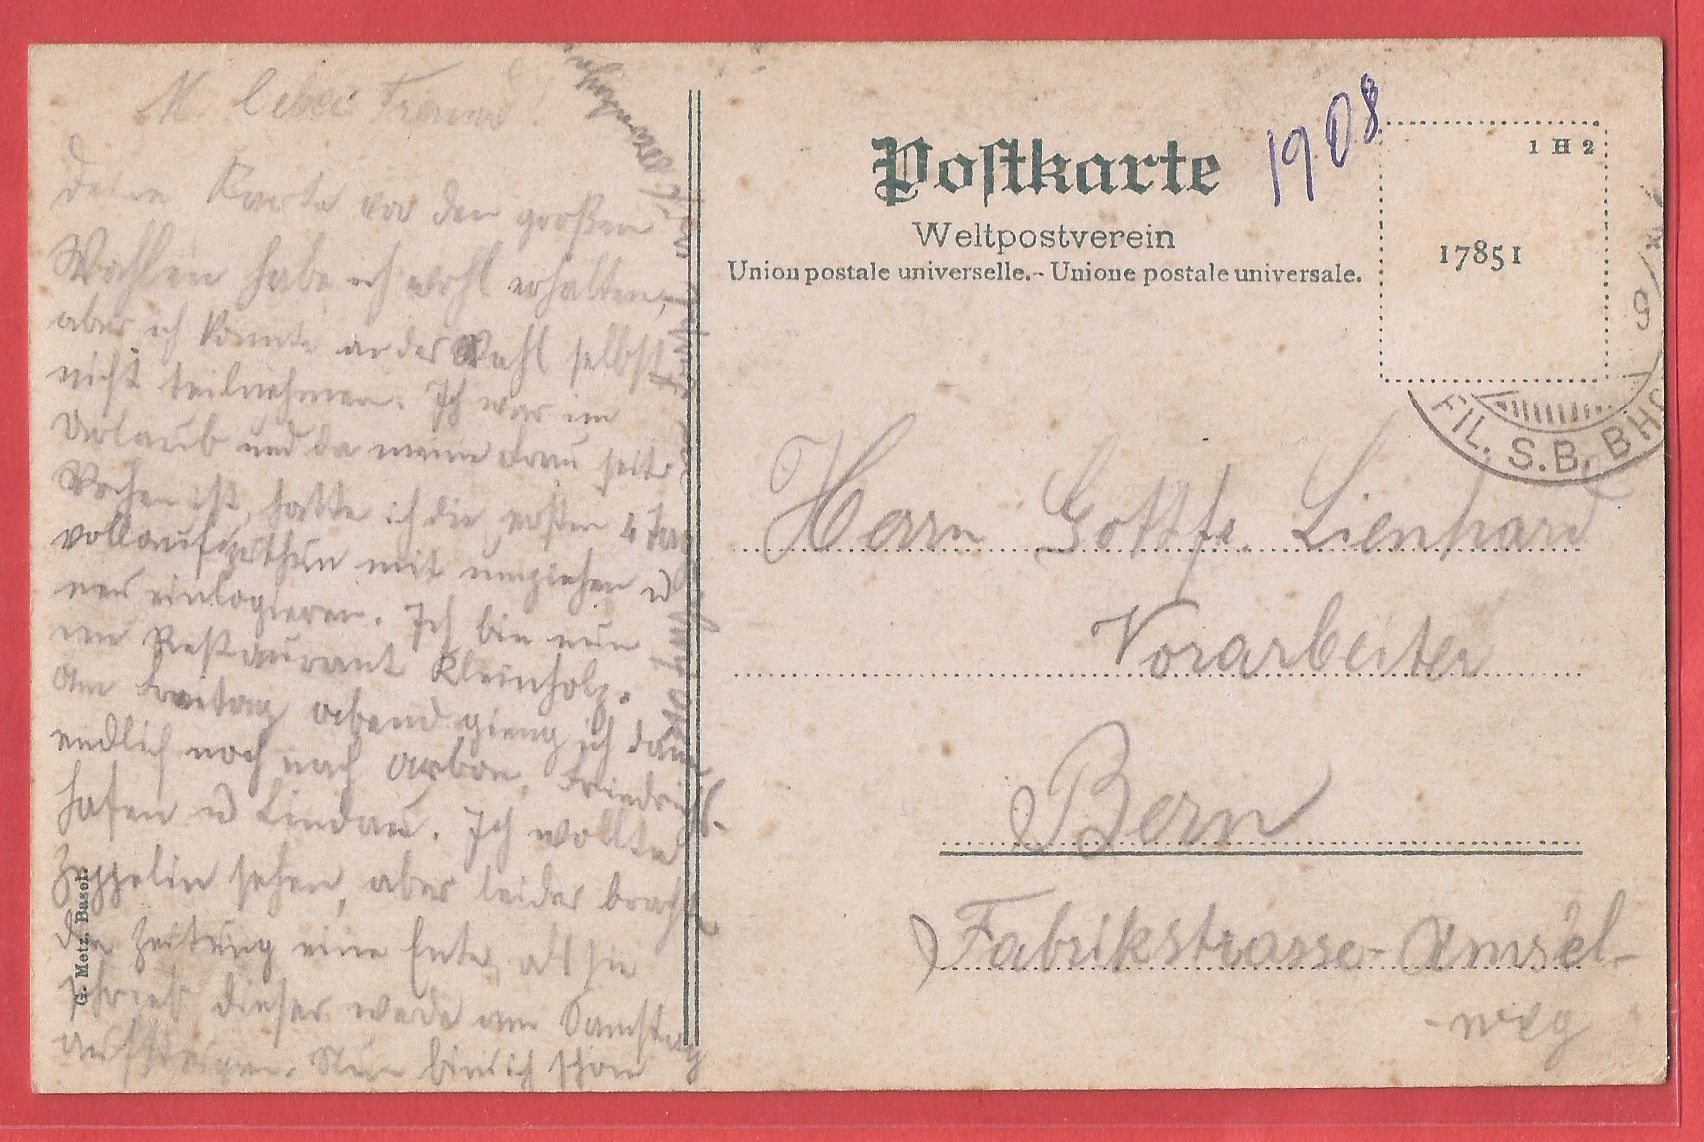 M. lieber Freund!
Deine Karte vor den großen
Wahlen habe ich wohl erhalten,
aber ich konnte an der Wahl selbst
nicht teilnehmen. Ich war im
Urlaub und da meine Frau seit
Wochen ist, hatte ich die ersten 4 Tag
vollauf zu thun mit umziehen u
neu einlogieren. Ich bin nun
im Restaurant Kleinholz.
Am Freitag abend gieng ich dann
endlich noch nach Arbon, Friedrichs-
hafen u Lindau. Ich wollte
Zeppelin sehen, aber leider brachte
die Zeitung eine Ente, als sie
schrieb dieser werde am Samstag
aufsteigen. Nun bin ich schon
G. Metz, Basel.
Postkarte
Weltpostverein
Union postale universelle.- Unione postale universale.
1908
1 H 2
17851
9
FIL. S.B. BHF
Herrn Gottfr. Lienhard
Vorarbeiter
Bern
Fabrikstrasse-Amsel-
-weg